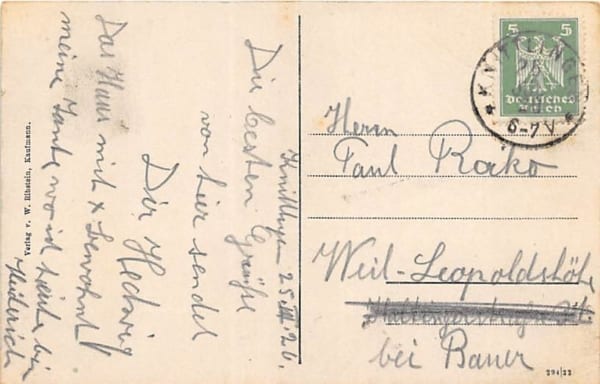 Knittlingen 25.III.26.
Die besten Grüße
von hier sendet
Dir Hedwig
Das Haus mit x bewohnt
meine Tante, wo ich heute bin
Verlag v. W. Ribstein, Kaufmann.
5 5
Deutsches
Reich
KNITTLINGEN
25
6-7 V.
Herrn
Paul Rako
Weil-Leopoldshöh
bei Bauer
394/23